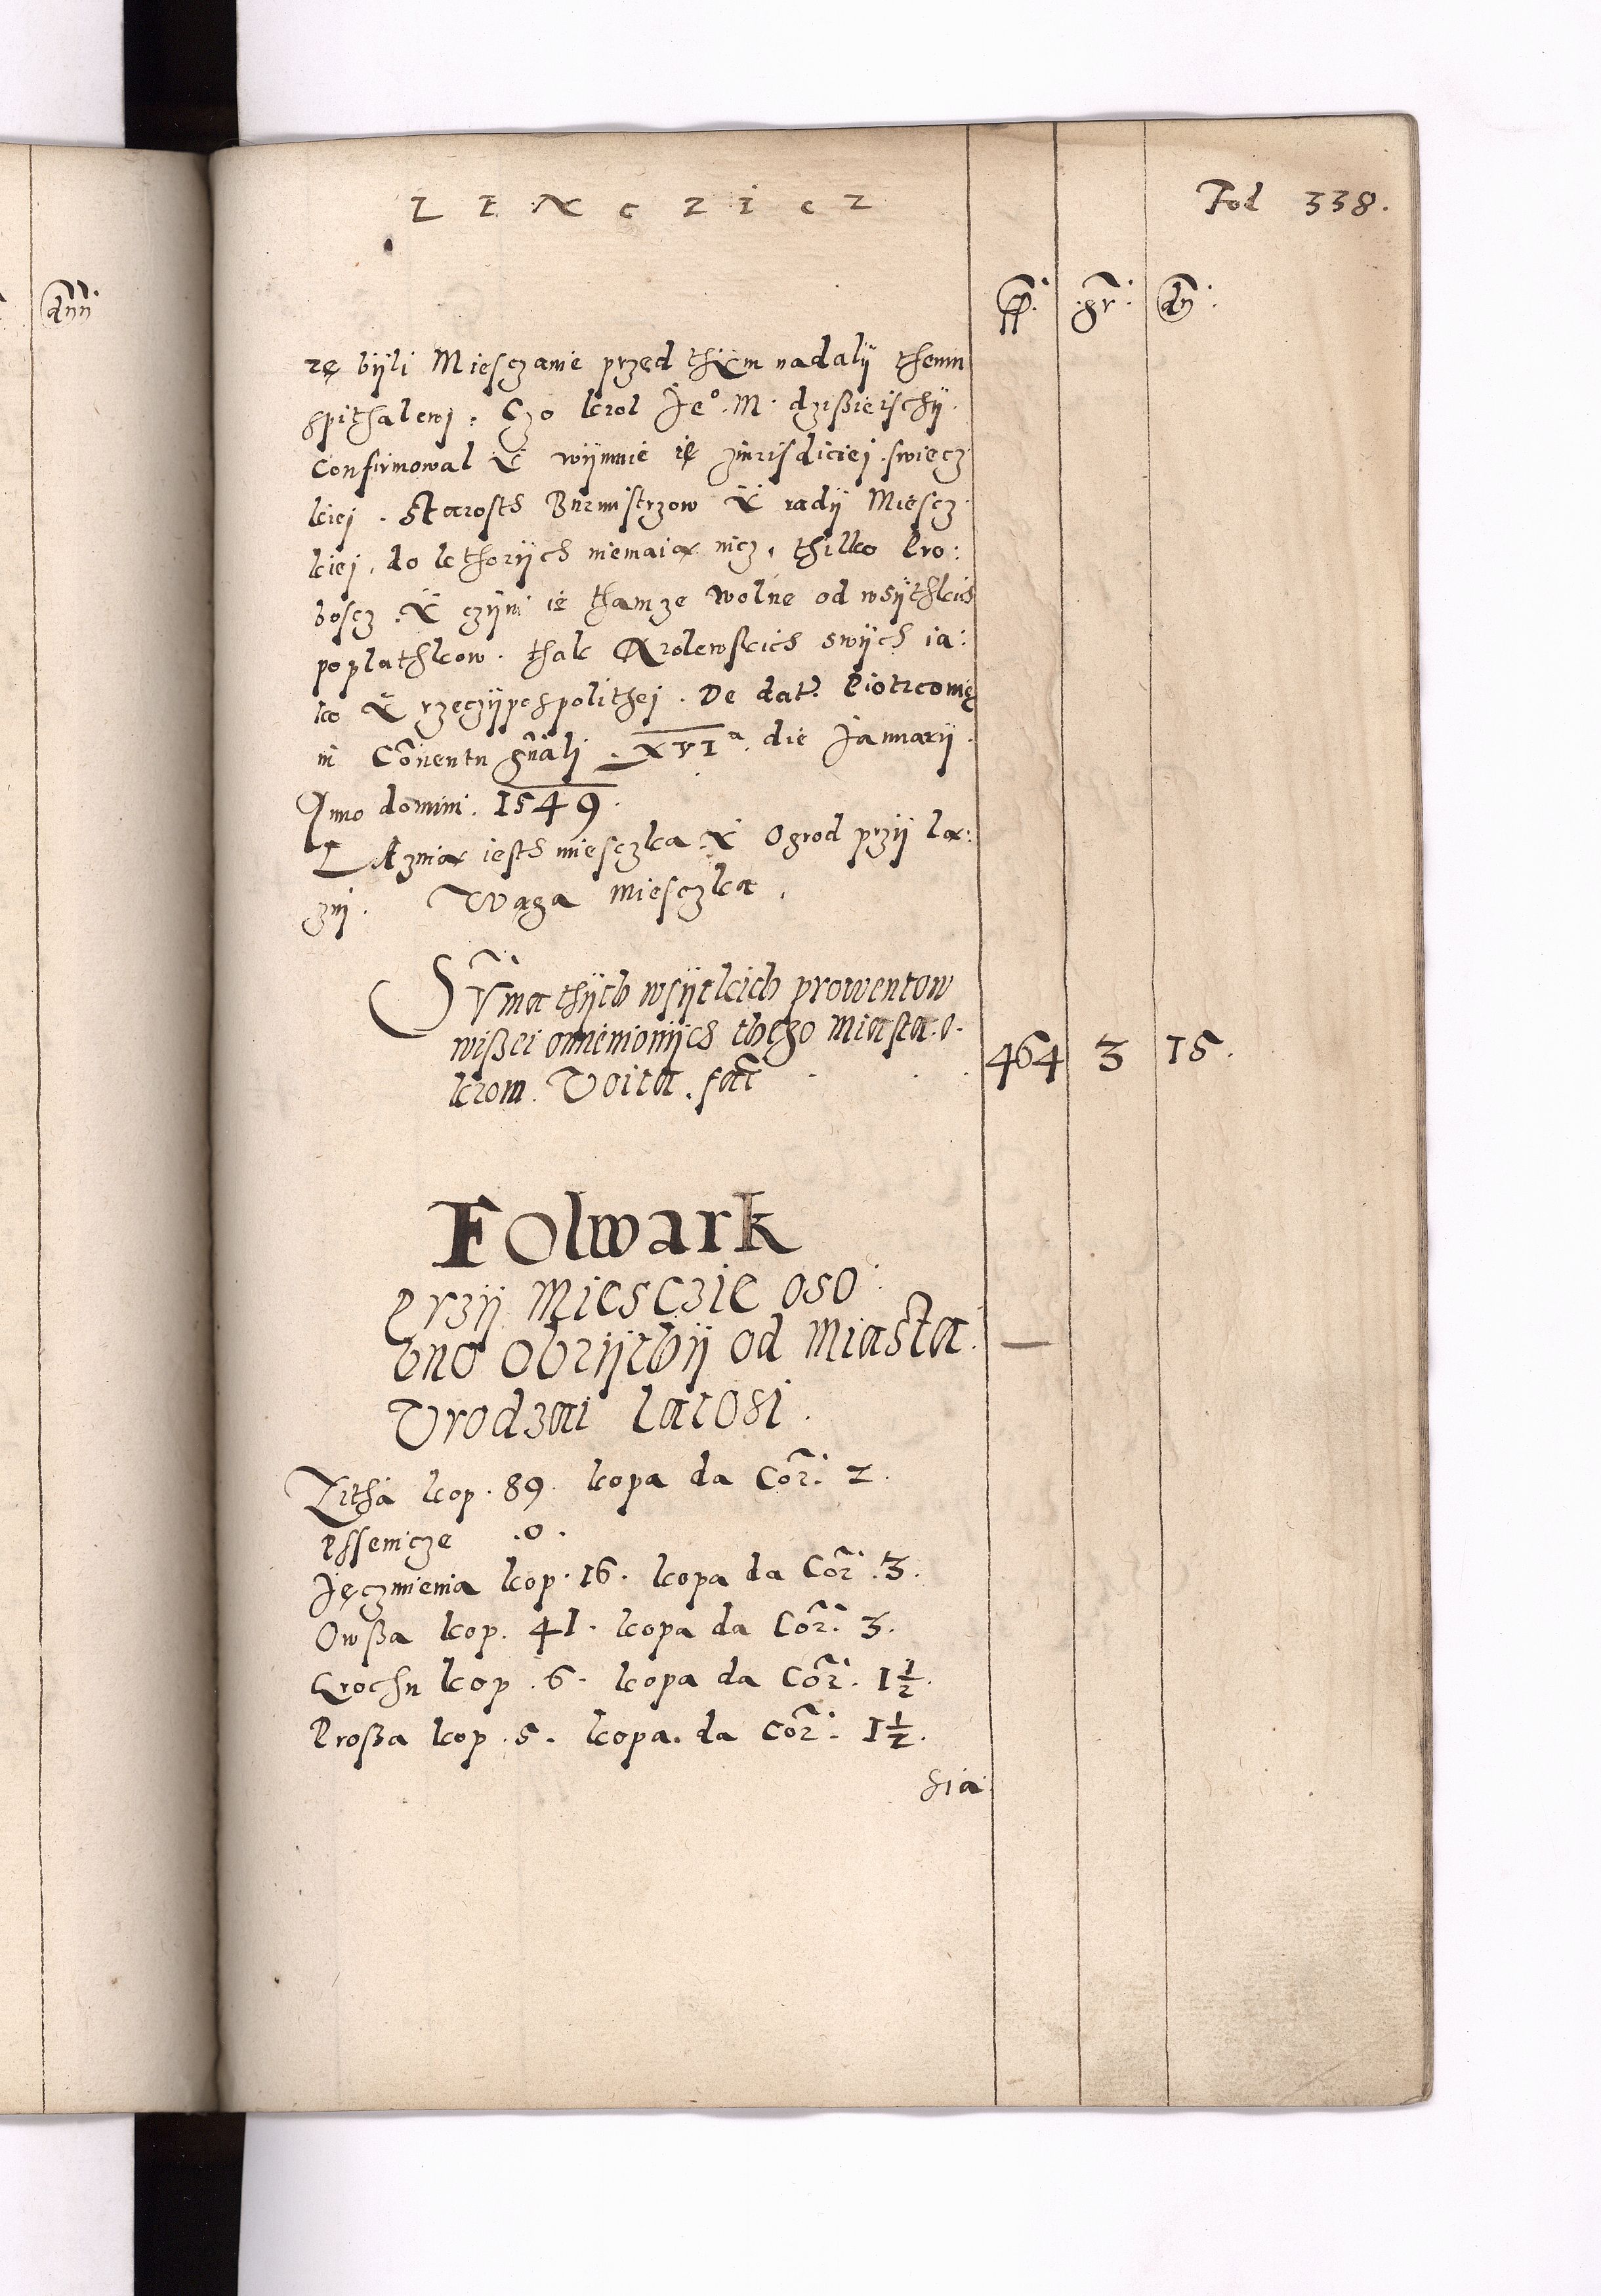 LENCZICZ
Fol 338.
gr:
dn:
dnn
rę byli Miesczanie przed thÿm nadalÿ themu
spithalewj. Czo krol Je°. M. dzißieischÿ.
Confirmowal Ẍ wÿmuie ię ziurisdiciej swiecz
kiej. Starosth Burmistrzow Ẍ radÿ Miescz
kiej, do kthorÿch niemaia nicz, thilko Pro:
boscz. Ẍ czÿni ie thamze wolne od wsÿthkich
poplathkow. thak Krolewskich swÿch ia:
ko Ẍ rzeczÿpospolithej. De dat. Piotrcowię
in Cōuentu gn̄alj. XVIᵃ. die Januarij.
Anno domini. 1549.
LAznia iesth miesczka. Ẍ Ogrod przÿ la:
znj. Waga miesczka.
Sum̄a thÿch wsÿtkich prowentow
wißei omienionÿch thego Miasta. o.
krom. Voita. fac̄
464 3 15.
Folwark
Przÿ Miesczie oso:
bno Obrÿthÿ od Miasta.
Vrodzai latosi.
Zitha kop. 89. kopa da Cor: 2.
Pssenicze .0.
Jęczmienia kop. 16. kopa da Cor. 3.
Owßa kop. 41. kopa da Cor. 3.
Grochu kop. 6. kopa da Cor. 1½.
Proßa kop. 5. kopa. da Cor. 1½.
Sia